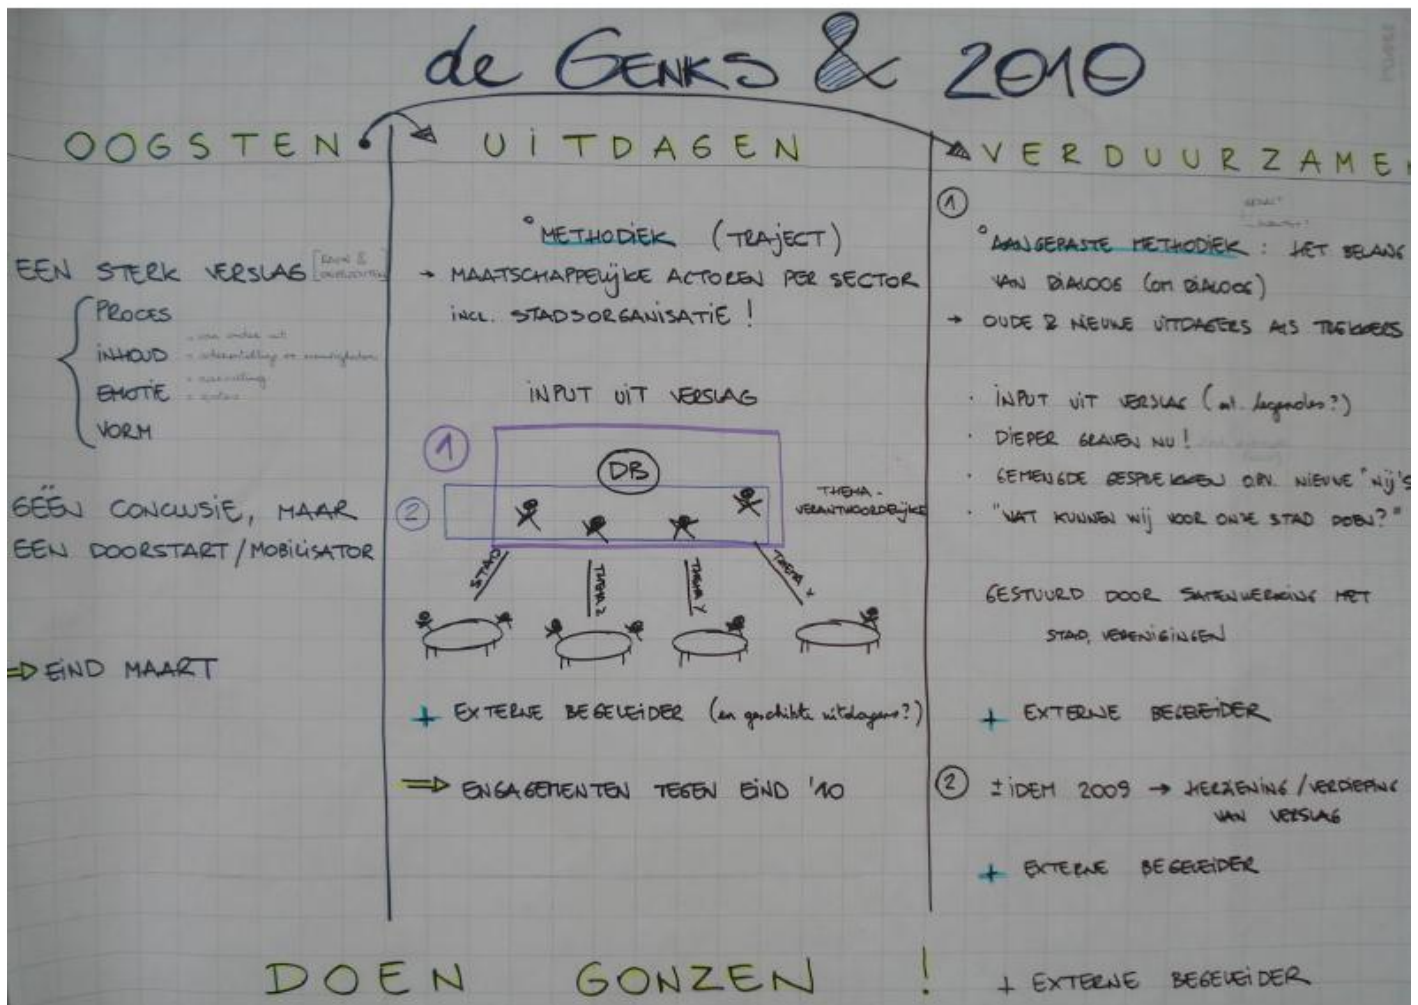 de GENKS & 2010
OOGSTEN
EEN STERK VERSLAG
PROCES
INHOUD
EMOTIE
VORM
GEËN CONCLUSIE, MAAR
EEN DOORSTART/MOBILISATOR
⇒ EIND MAART
UITDAGEN
° METHODIEK (TRAJECT)
→ MAATSCHAPPELIJKE ACTOREN PER SECTOR
INCL. STADSORGANISATIE !
INPUT UIT VERSLAG
1
DB
2
THEMA-
VERANTWOORDELIJKE
STAD
THEMA Z
THEMA Y
THEMA X
+ EXTERNE BEGELEIDER (en geschikte uitdagers?)
⇒ ENGAGEMENTEN TEGEN EIND '10
VERDUURZAMEN
1
° AANGEPASTE METHODIEK : HET BELANG
VAN DIALOOG (OM DIALOOG)
→ OUDE & NIEUWE UITDAGERS ALS TREKKERS
· INPUT UIT VERSLAG ( legendes?)
· DIEPER GRAVEN NU !
· GEMENGDE GESPREKKEN O.P.V. NIEUWE "Wij's
· "WAT KUNNEN WIJ VOOR ONZE STAD DOEN?"
GESTUURD DOOR SAMENWERKING MET
STAD, VERENIGINGEN
+ EXTERNE BEGELEIDER
2 ± IDEM 2009 → HERZIENING/VERDIEPING
VAN VERSLAG
+ EXTERNE BEGELEIDER
DOEN GONZEN !
+ EXTERNE BEGELEIDER